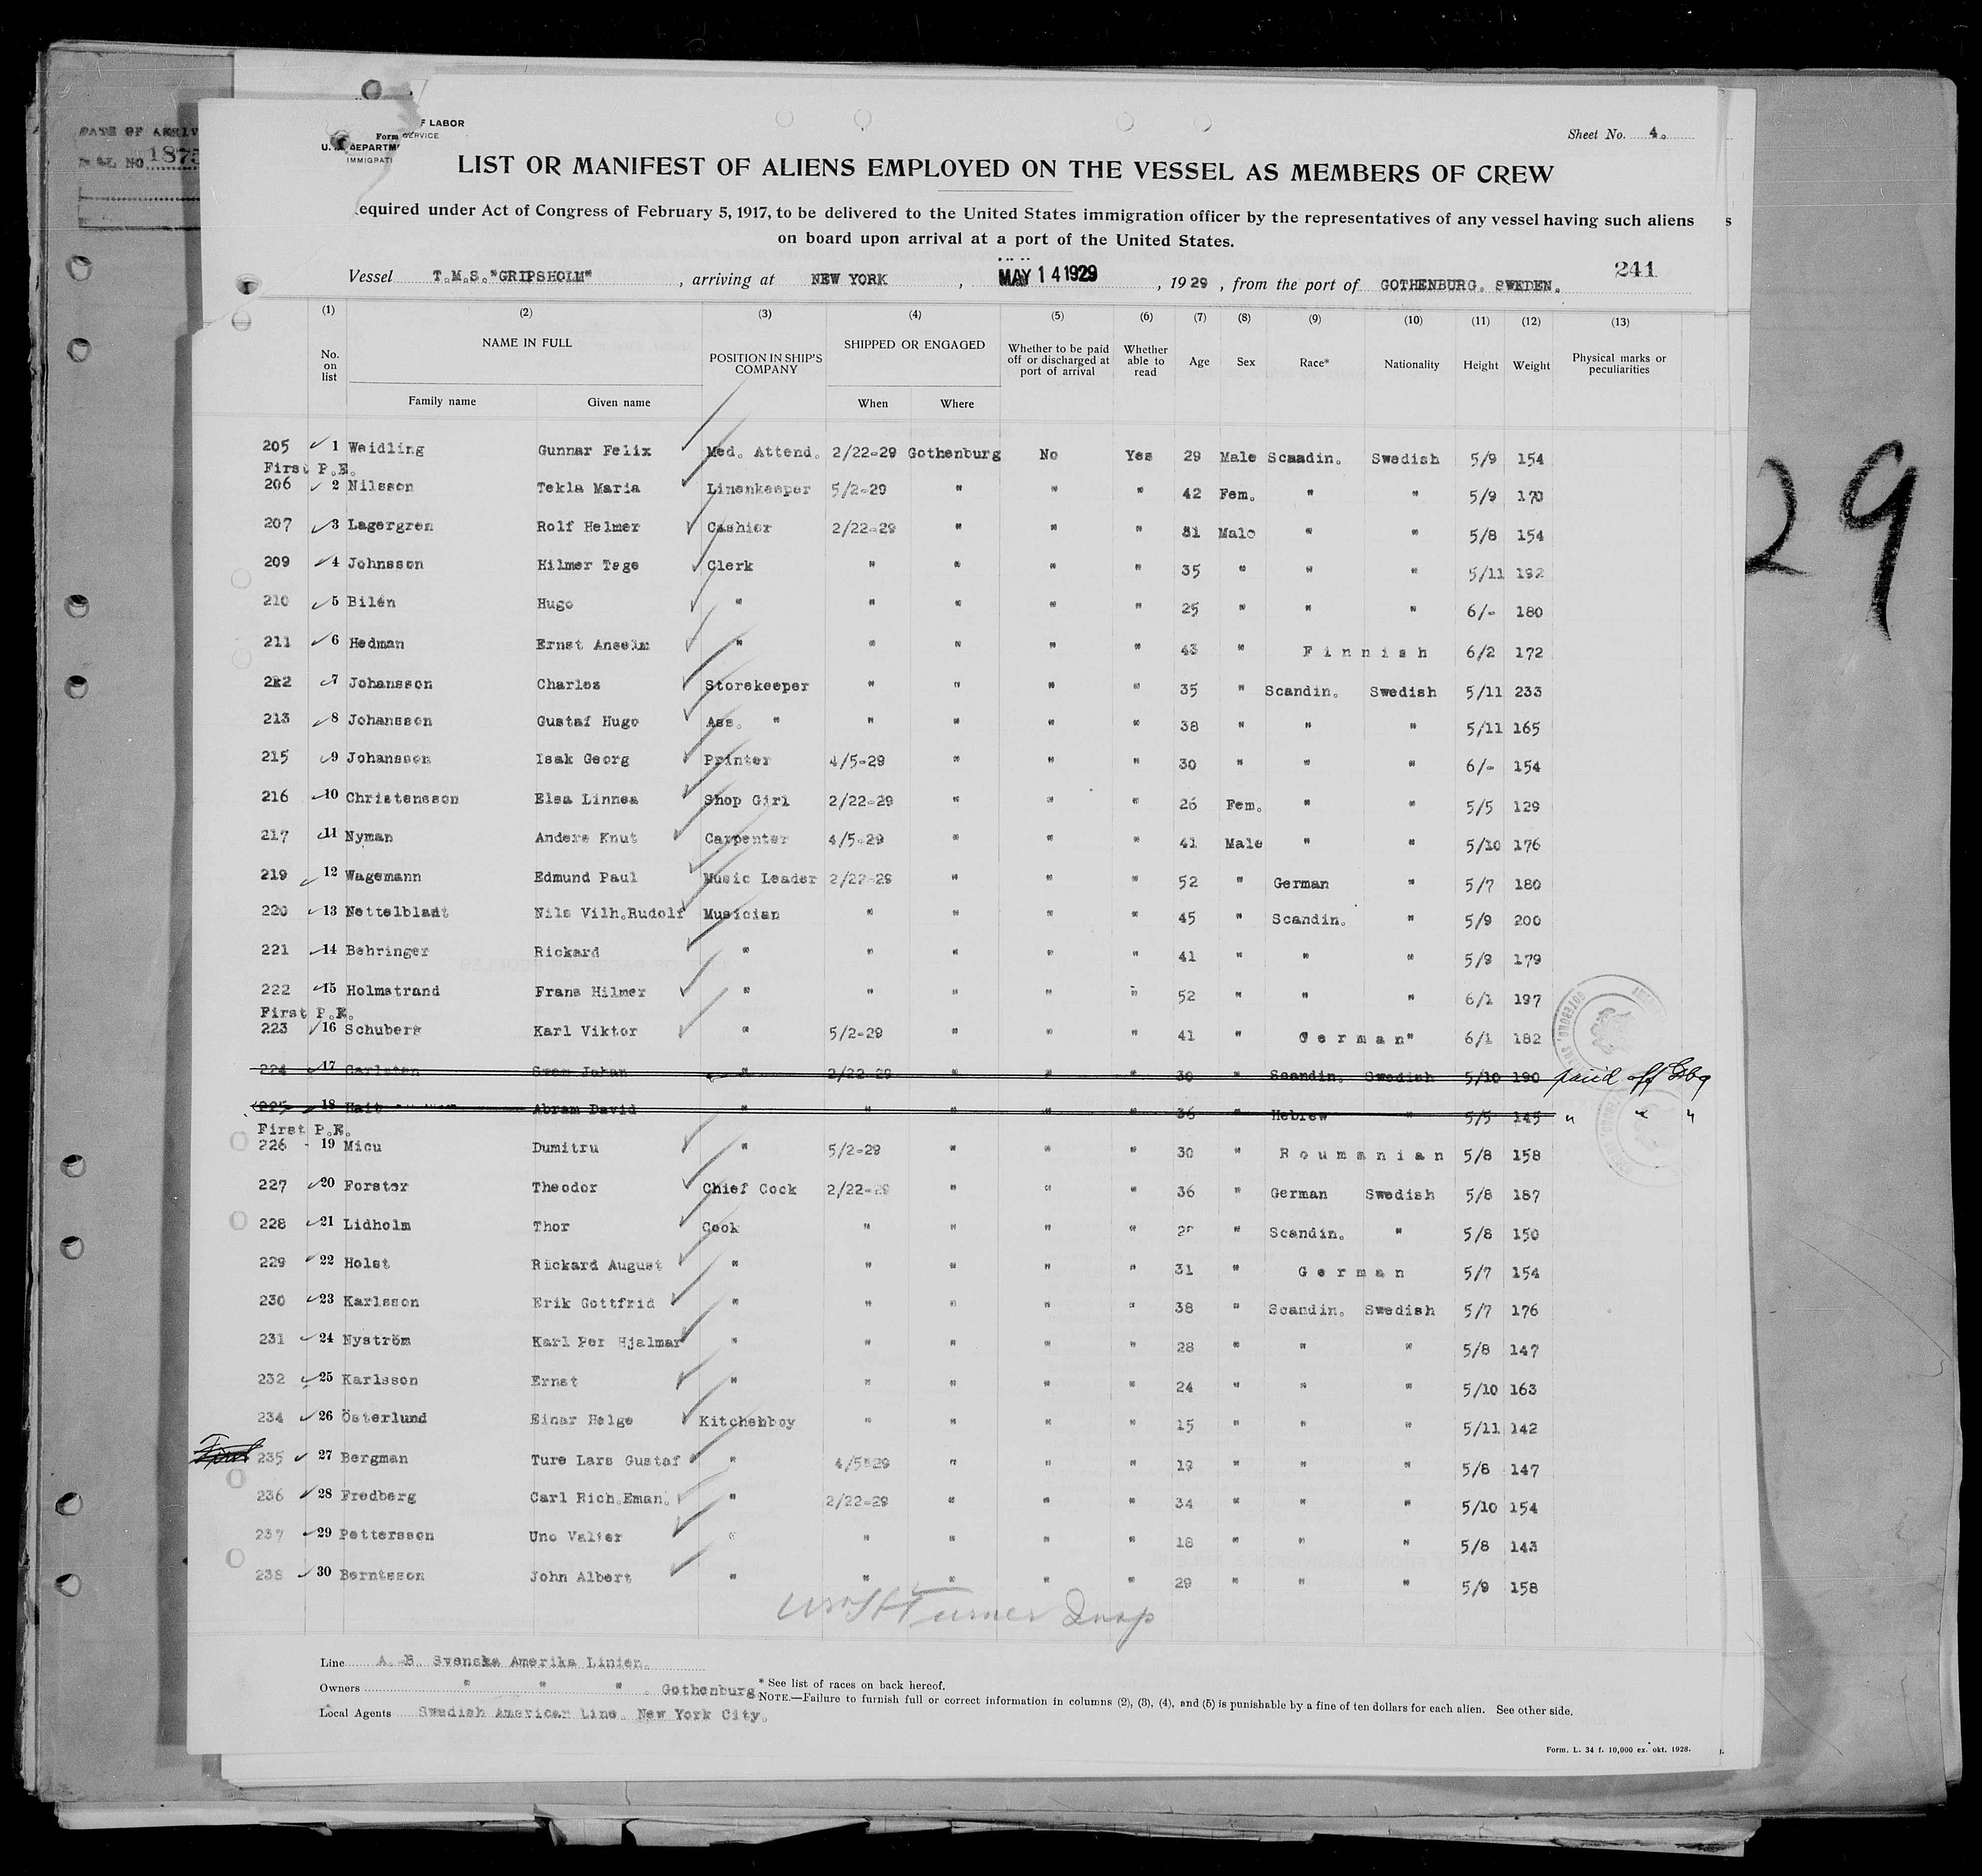 DATE OF ARRIV
VOL NO. 1875
F LABOR
Form SERVICE
U. DEPARTM
IMMIGRATI
Sheet No. 4.
LIST OR MANIFEST OF ALIENS EMPLOYED ON THE VESSEL AS MEMBERS OF CREW
equired under Act of Congress of February 5, 1917, to be delivered to the United States immigration officer by the representatives of any vessel having such aliens s
on board upon arrival at a port of the United States.
241
Vessel T.M.S."GRIPSHOLM" , arriving at NEW YORK , MAY 14 1929 , 1929 , from the port of GOTHENBURG. SWEDEN.
(1) (2) (3) (4) (5) (6) (7) (8) (9) (10) (11) (12) (13)
No. on list NAME IN FULL Family name Given name POSITION IN SHIP'S COMPANY SHIPPED OR ENGAGED When Where Whether to be paid off or discharged at port of arrival Whether able to read Age Sex Race* Nationality Height Weight Physical marks or peculiarities
205 1 Weidling Gunnar Felix Med. Attend. 2/22-29 Gothenburg No Yes 29 Male Scandin. Swedish 5/9 154
First P.E.
206 2 Nilsson Tekla Maria Linenkeeper 5/2-29 " " " 42 Fem. " " 5/9 170
207 3 Lagergren Rolf Helmer Cashier 2/22-29 " " " 31 Male " " 5/8 154
209 4 Johnsson Hilmer Tage Clerk " " " " 35 " " " 5/11 192
210 5 Bilén Hugo " " " " " 25 " " " 6/- 180
211 6 Hedman Ernst Anselm " " " " " 43 " Finnish 6/2 172
212 7 Johansson Charles Storekeeper " " " " 35 " Scandin. Swedish 5/11 233
213 8 Johansson Gustaf Hugo Ass. " " " " " 38 " " " 5/11 165
215 9 Johansson Isak Georg Printer 4/5-29 " " " 30 " " " 6/- 154
216 10 Christensson Elsa Linnea Shop Girl 2/22-29 " " " 26 Fem. " " 5/5 129
217 11 Nyman Anders Knut Carpenter 4/5-29 " " " 41 Male " " 5/10 176
219 12 Wagemann Edmund Paul Music Leader 2/22-29 " " " 52 " German " 5/7 180
220 13 Nettelbladt Nils Vilh.Rudolf Musician " " " " 45 " Scandin. " 5/9 200
221 14 Behringer Rickard " " " " " 41 " " " 5/9 179
222 15 Holmstrand Frans Hilmer " " " " " 52 " " " 6/1 197
First P.E.
223 16 Schuberg Karl Viktor " 5/2-29 " " " 41 " German" 6/1 182
224 17 Carlsten Sven Johan " 2/22-29 " " " 30 " Scandin. Swedish 5/10 190 paid off Gbg
225 18 Hait Abram David " " " " " 36 " Hebrew " 5/5 145 " " "
First P.E.
226 19 Micu Dumitru " 5/2-29 " " " 30 " Roumanian 5/8 158
227 20 Forster Theodor Chief Cock 2/22-29 " " " 36 " German Swedish 5/8 187
228 21 Lidholm Thor Cook " " " " " Scandin. " 5/8 150
229 22 Holst Rickard August " " " " " 31 " German 5/7 154
230 23 Karlsson Erik Gottfrid " " " " " 38 " Scandin. Swedish 5/7 176
231 24 Nyström Karl Per Hjalmar " " " " " 28 " " " 5/8 147
232 25 Karlsson Ernst " " " " " 24 " " " 5/10 163
234 26 Österlund Einar Helge Kitchenboy " " " " 15 " " " 5/11 142
235 27 Bergman Ture Lars Gustaf " 4/5-29 " " " 19 " " " 5/8 147
236 28 Fredberg Carl Rich.Eman. " 2/22-29 " " " 34 " " " 5/10 154
237 29 Pettersson Uno Valter " " " " " 18 " " " 5/8 143
238 30 Berntsson John Albert " " " " " 29 " " " 5/9 158
Turner Insp
29
Line A.-B. Svenska Amerika Linien.
Owners " " " . Gothenburg.
Local Agents Swedish American Line. New York City.
* See list of races on back hereof.
NOTE.—Failure to furnish full or correct information in columns (2), (3), (4), and (5) is punishable by a fine of ten dollars for each alien. See other side.
Form. L. 34 f. 10,000 ex. okt. 1928.